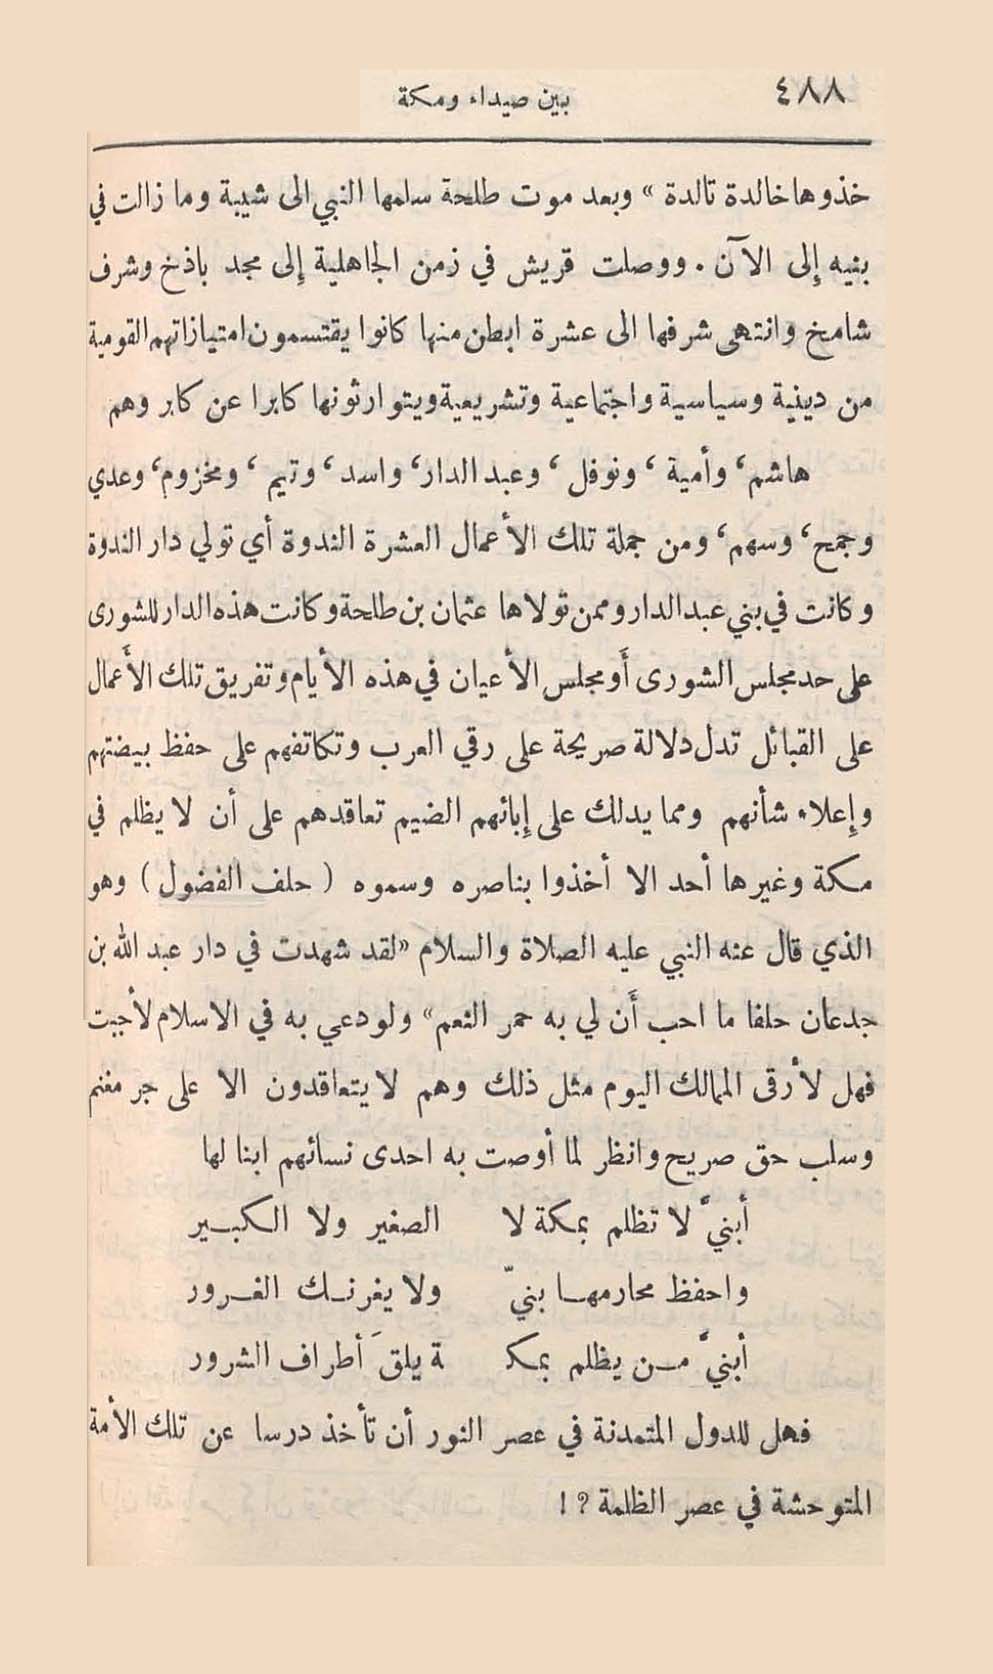 ٤٨٨
بين صيداء ومكة
خذوها خالدة تالدة » وبعد موت طلحة سلمها النبي الى شيبة وما زالت في
بنيه إلى الآن . ووصلت قريش في زمن الجاهلية إلى مجد باذخ وشرف
شامخ وانتهى شرفها الى عشرة ابطن منها كانوا يقتسمون امتيازاتهم القومية
من دينية وسياسية واجتماعية وتشريعية ويتوارثونها كابرا عن كابر وهم
هاشم، وأمية، ونوفل، وعبد الدار، واسد، وتيم، ومخزوم، وعدي
وجمح، وسهم، ومن جملة تلك الأعمال العشرة الندوة أي تولي دار الندوة
وكانت في بني عبد الدار وممن تولاها عثمان بن طلحة وكانت هذه الدار للشورى
على حد مجلس الشورى أَو مجلس الأعيان في هذه الأيام وتفريق تلك الأَعمال
على القبائل تدل دلالة صريحة على رقي العرب وتكاتفهم على حفظ بيضتهم
وإعلاء شأنهم ومما يدلك على إبائهم الضيم تعاقدهم على أن لا يظلم في
مكة وغيرها أحد الا أخذوا بناصره وسموه ( حلف الفضول ) وهو
الذي قال عنه النبي عليه الصلاة والسلام «لقد شهدت في دار عبد الله بن
جدعان حلفا ما احب أَن لي به حمر النعم» ولو دعي به في الاسلام لأجبت
فهل لأرقى الممالك اليوم مثل ذلك وهم لا يتعاقدون الا على جر مغنم
وسلب حق صريح وانظر لما أوصت به احدى نسائهم ابنا لها
أبنيَّ لا تظلم بمكة لا الصغير ولا الكبـير
واحفظ محارمهـا بنيّ ولا يغرنـك الغـرور
أبنيَّ مـن يظلم بمكـ ة يلقَ أطراف الشرور
فهل للدول المتمدنة في عصر النور أن تأخذ درسا عن تلك الأمة
المتوحشة في عصر الظلمة ؟!